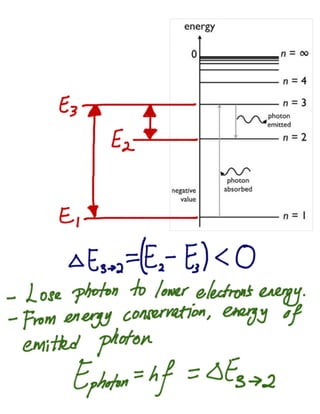 energy
0
n = ∞
n = 4
E₃
n = 3
photon
emitted
E₂
n = 2
photon
absorbed
negative
value
E₁
n = 1
ΔE₃→₂=(E₂-E₃)<0
- Lose photon to lower electron's energy.
- From energy conservation, energy of
emitted photon
Ephoton = hf = ΔE₃→₂